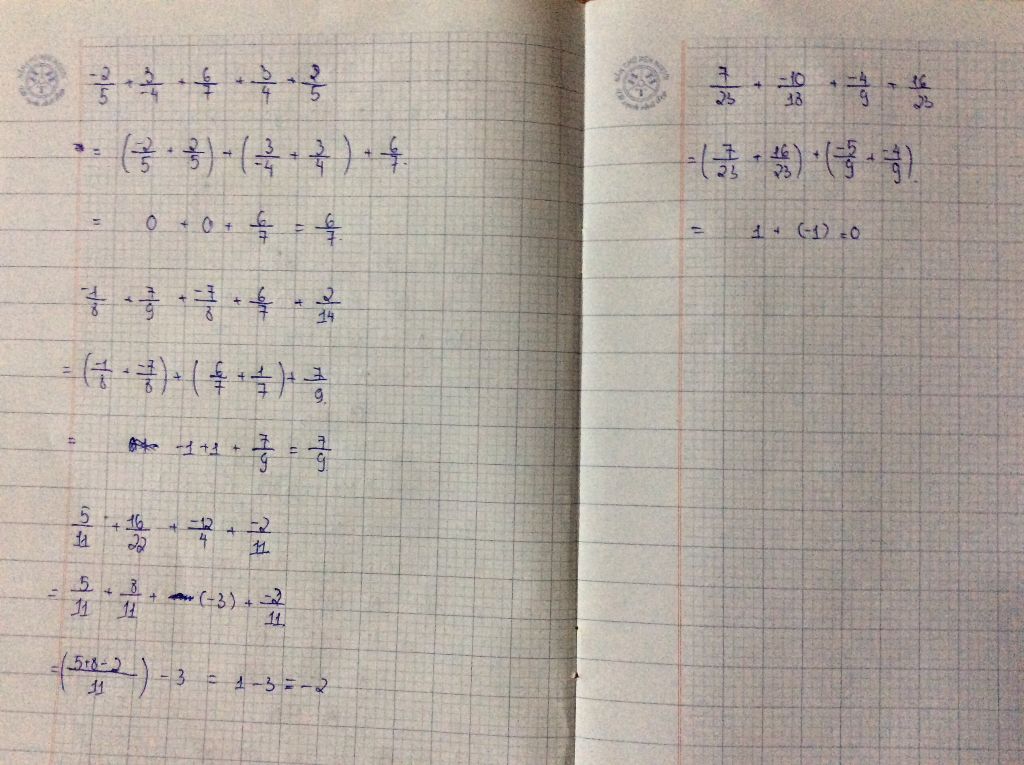 -2/5 + 3/-4 + 6/7 + 3/4 + 2/5
= (-2/5 + 2/5) + (3/-4 + 3/4) + 6/7.
= 0 + 0 + 6/7 = 6/7.
-1/8 + 7/9 + -7/8 + 6/7 + 2/14
= (-1/8 + -7/8) + (6/7 + 1/7) + 7/9.
= -1 + 1 + 7/9 = 7/9
5/11 + 16/22 + -12/4 + -2/11
= 5/11 + 8/11 + (-3) + -2/11
= (5+8-2/11) - 3 = 1 - 3 = -2
7/23 + -10/18 + -4/9 + 16/23
= (7/23 + 16/23) + (-5/9 + -4/9).
= 1 + (-1) = 0